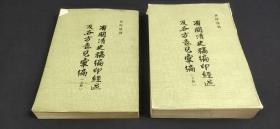 有關清史稿編印經過
及各方意見彙編
有關清史稿編印經過
及各方意見彙編